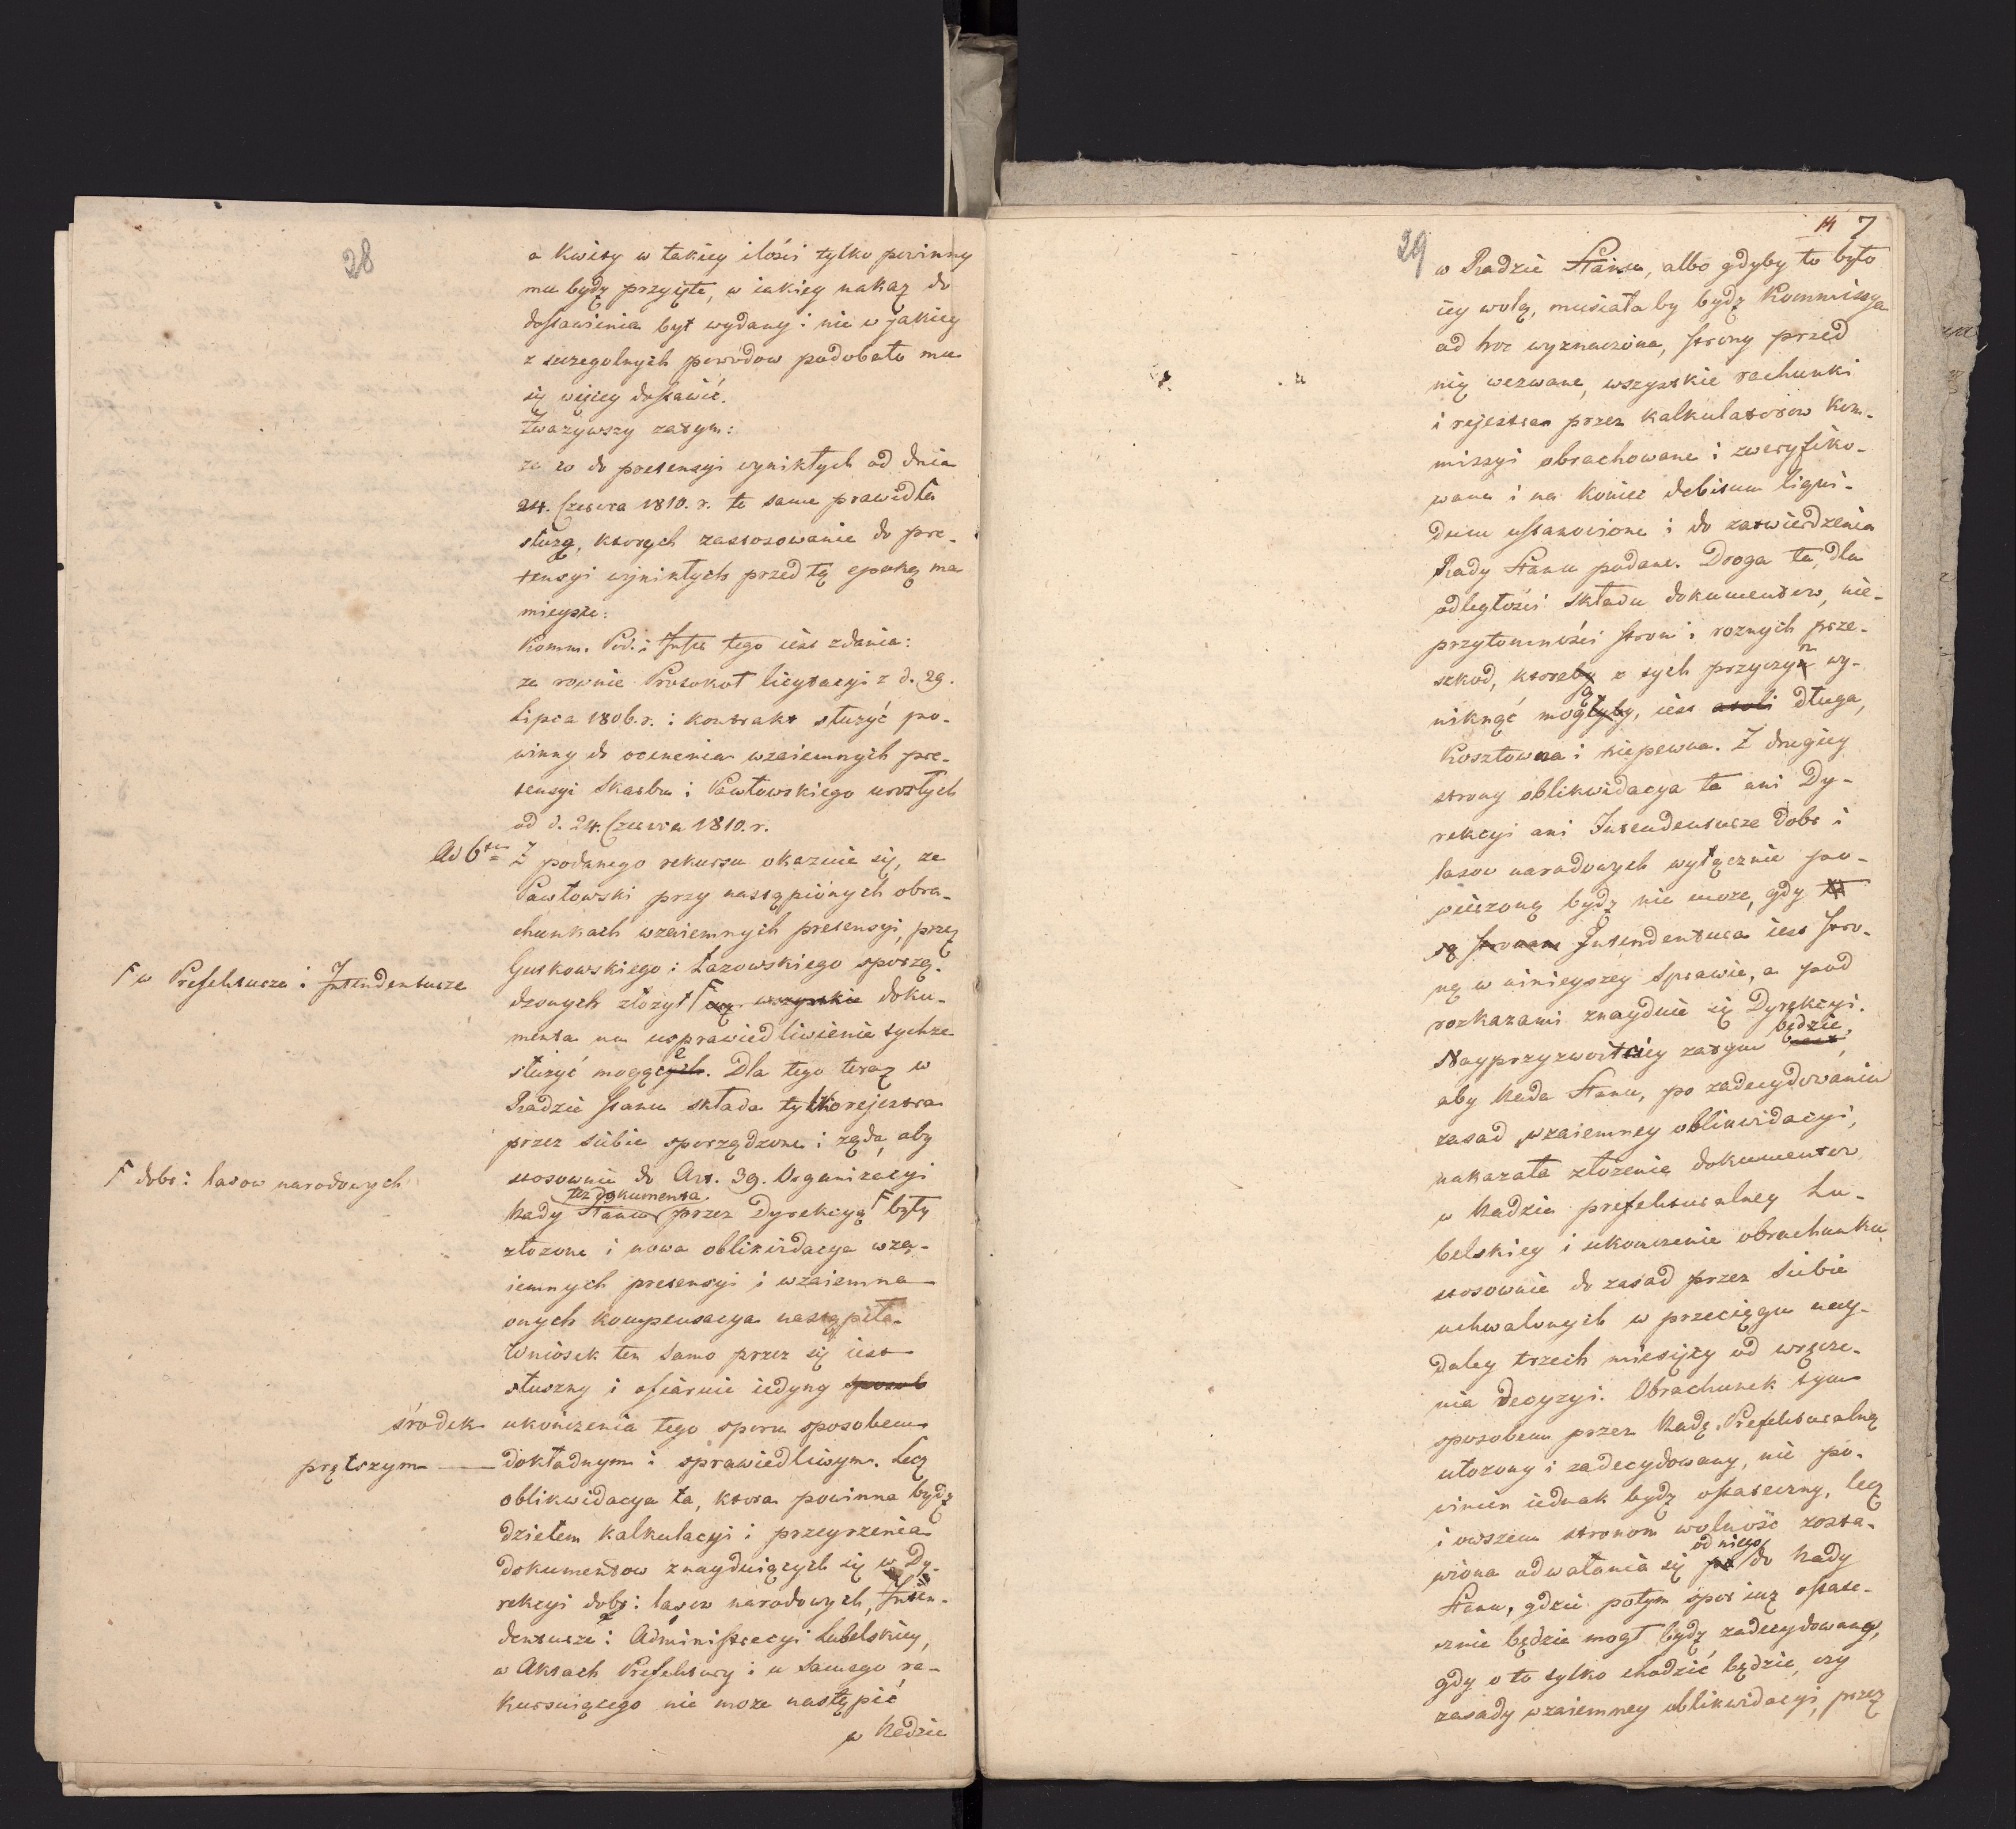 28
a kwity w takiey ilości tylko powinny
mu bydz przyięte, w iakiey nakaz do
dostawienia był wydany: nie w jakiey
z szczegolnych powodow podobało mu
się więcey dostawić.
Zważywszy zatym:
że co do pretensyi wynikłych od dnia
24. Czerwca 1810. r. te same prawidła
służą, ktorych zastosowanie do pre-
tensyi wynikłych przed tą epoką ma
mieysce:
Komm. Pod. i Inst. tego iest zdania:
że rownie Protokoł licytacyi z d. 29.
Lipca 1806. r. i kontrakt służyć po-
winny do ocenienia wzaiemnych pre-
tensyi Skarbu i Pawłowskiego urosłych
od d. 24. Czerwca 1810. r.
Ad 6tum Z podanego rekursu okazuie się, że
Pawłowski przy nastąpionych obra-
chunkach wzaiemnych pretensyi, przez
Gutkowskiego i Łazowskiego sporzą-
Γ w Prefekturze i Intendenturze
dzonych złożył Γ wszystkie doku-
menta na usprawiedliwienie tychże
służyć mogące. Dla tego teraz w
Radzie Stanu składa tylko rejestra
przez siebie sporządzone i żąda, aby
stosownie do Art. 39. Organizacyi
Γ dobr i lasow narodowych
też dokumenta
Rady Stanu przez Dyrekcyą Γ były
złożone i nowa oblikwidacya wza-
iemnych pretensyi i wzaiemna
onych kompensacya nastąpiła.
Wniosek ten samo przez się iest
słuszny i ofiaruie iedyny sposob
środek ukończenia tego sporu sposobem
prętszym dokładnym i sprawiedliwym. Lecz
oblikwidacya ta, ktora powinna bydz
dziełem kalkulacyi i przeyrzenia
dokumentow znayduiących się w Dy-
rekcyi dobr i lasow narodowych, Inten-
denturze i Administracyi Lubelskiey,
w Aktach Prefektury i u samego re-
kursuiącego nie może nastąpić
w Radzie
29
14 7
w Radzie Stanu, albo gdyby to było
iey wolą, musiała by bydz Kommissya
ad hoc wyznaczona, strony przed
nią wezwane, wszystkie rachunki
i rejestra przez kalkulatorow Kom-
missyi obrachowane i zweryfiko-
wane i na koniec debitum liqui-
dum ustanowione i do zatwierdzenia
Rady Stanu podane. Droga ta, dla
odległości składu dokumentow, nie-
przytomności stron i roznych prze-
szkod, ktoreby z tych przyczyn wy-
niknąć mogą, iest długa,
kosztowna i niepewna. Z drugiey
strony oblikwidacya ta ani Dy-
rekcyi ani Intendenturze dobr i
lasow narodowych wyłącznie po-
wierzoną bydz nie może, gdy
są stronami Intendentura iest stro-
ną w ninieyszey sprawie, a pod
rozkazami znayduie się Dyrekcyi.
będzie,
Nayprzyzwoitiey zatym iest,
aby Rada Stanu, po zadecydowaniu
zasad wzaiemney oblikwidacyi,
nakazała złożenie dokumentow
w Radzie prefekturalney Lu-
belskiey i ukończenie obrachunku
stosownie do zasad przez siebie
uchwalonych w przeciągu nay-
daley trzech miesięcy od wręcze-
nia decyzyi. Obrachunek tym
sposobem przez Radę Prefekturalną
ułożony i zadecydowany, nie po-
winien iednak bydz ostateczny, lecz
i owszem stronom wolność zosta-
od niego
wiona odwołania się do Rady
Stanu, gdzie potym spor iuż ostate-
cznie będzie mogł bydz zadecydowany,
gdy o to tylko chodzić będzie, czy
zasady wzaiemney oblikwidacyi, przez